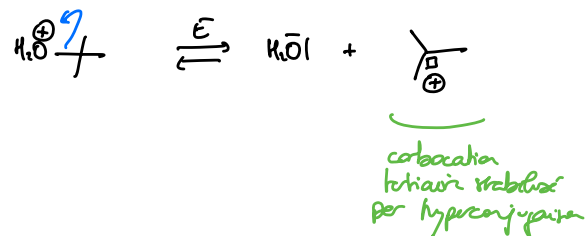 H₂O ⊕ E H₂O + ⊕
carbocation
tertiaire stabilisé
par hyperconjugaison